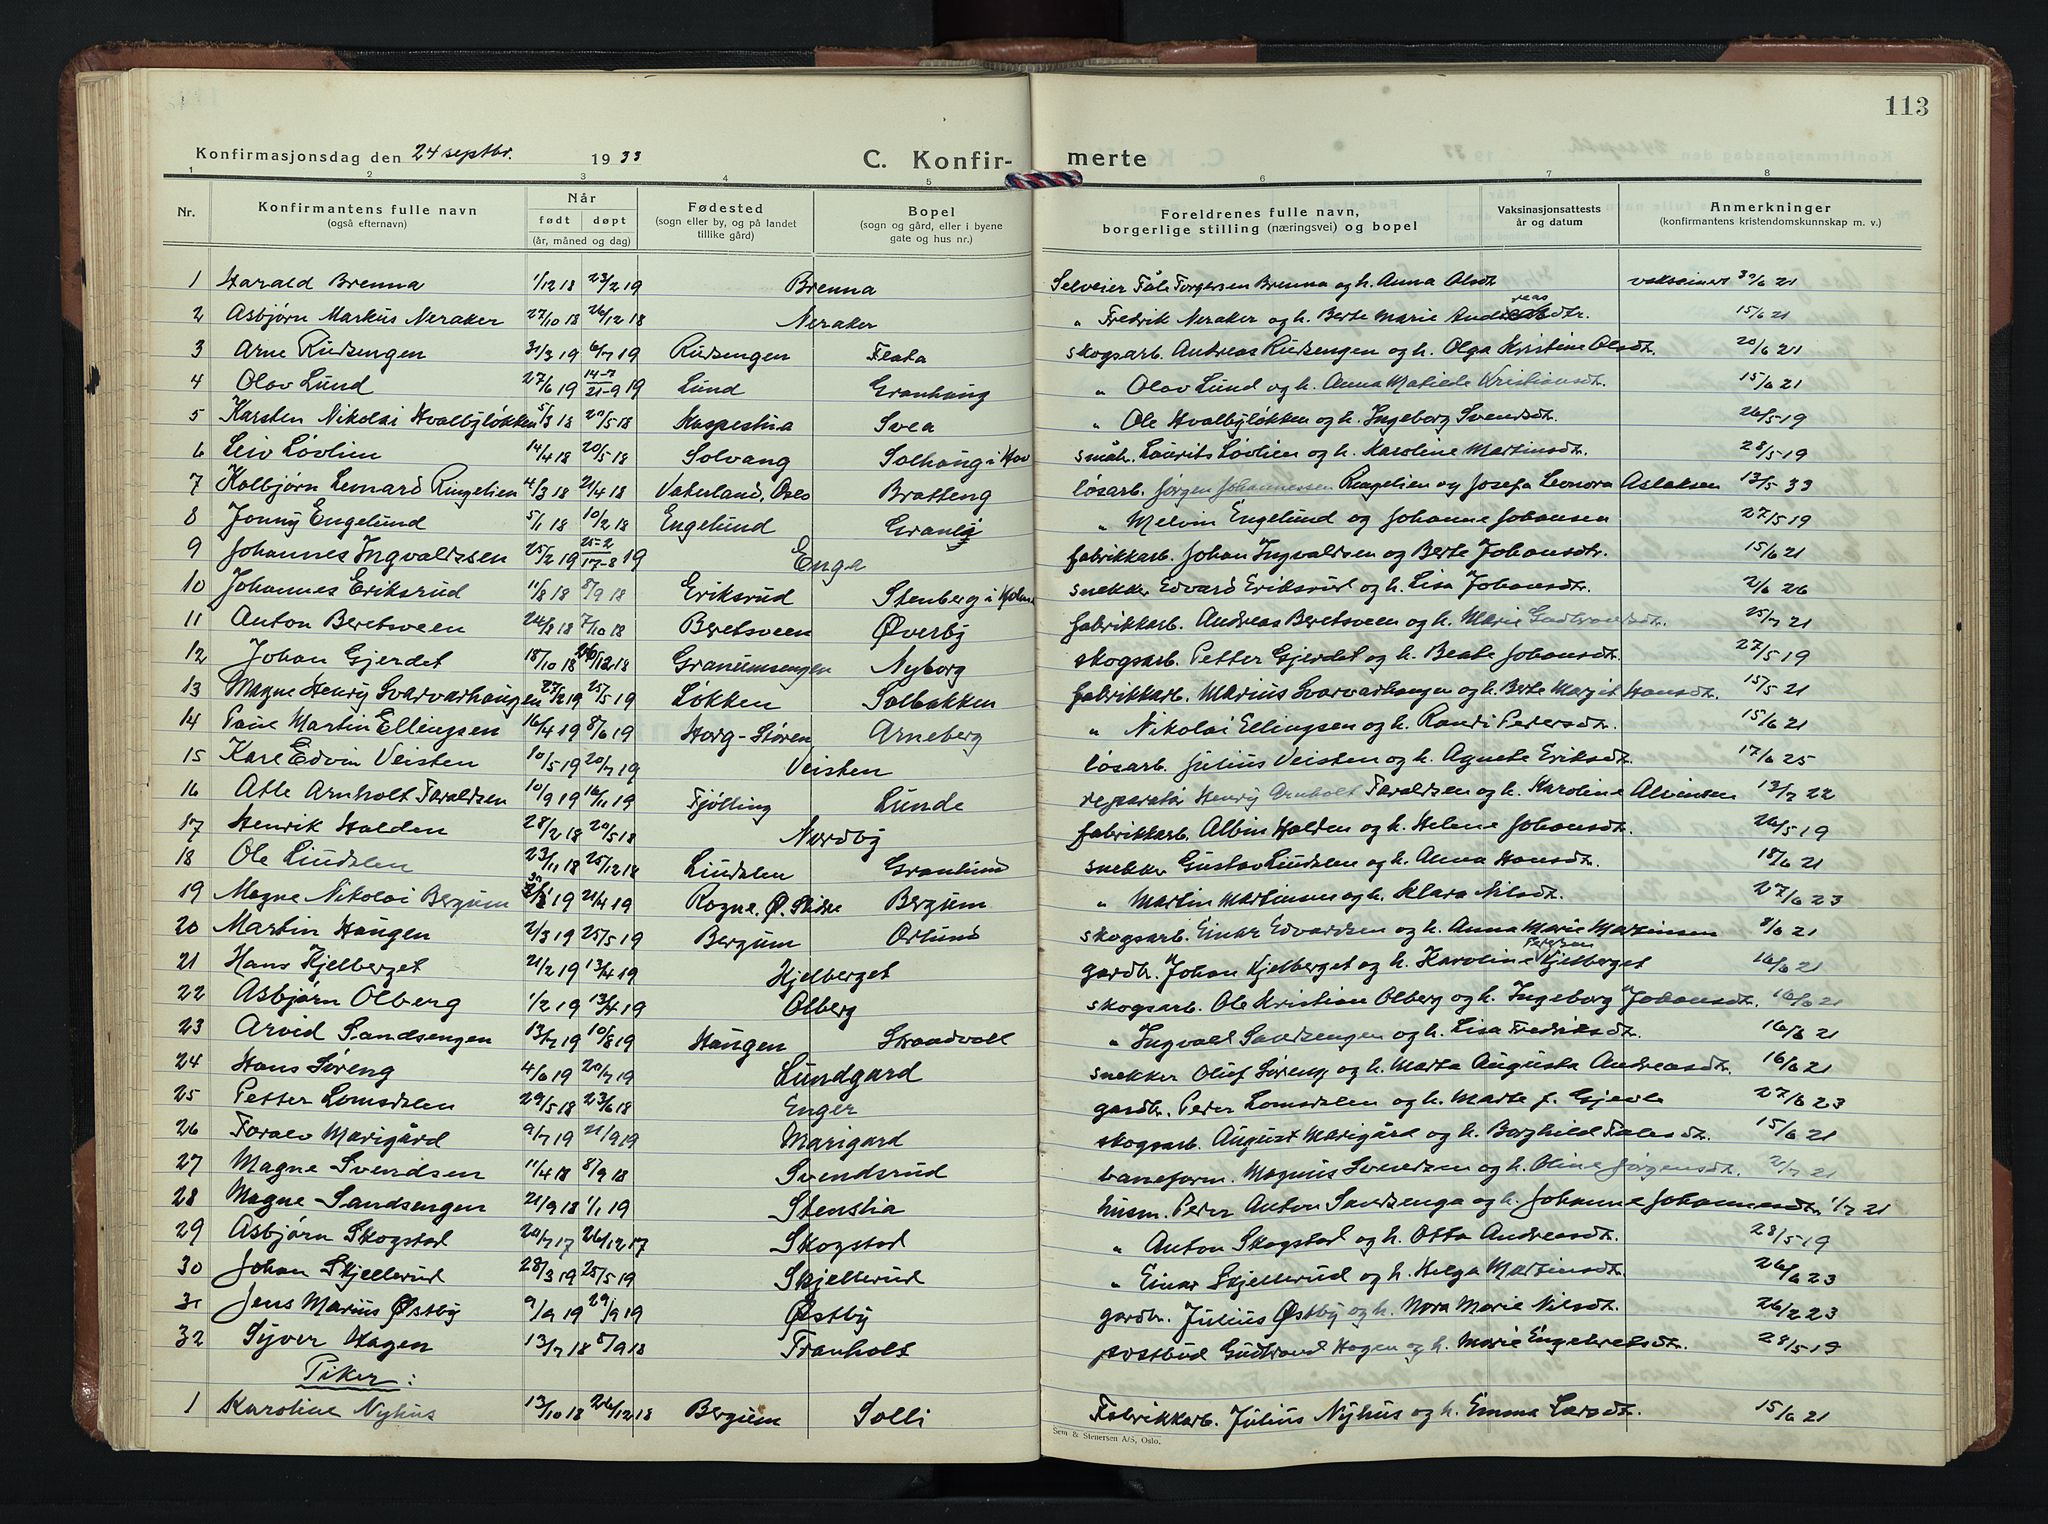 113
Konfirmasjonsdag den 24 septbr. 1933 C. Konfir- merte
1 2 3 4 5 6 7 8
Nr. Konfirmantens fulle navn (også efternavn) Når født døpt (år, måned og dag) Fødested (sogn eller by, og på landet tillike gård) Bopel (sogn og gård, eller i byene gate og hus nr.) Foreldrenes fulle navn, borgerlige stilling (næringsvei) og bopel Vaksinasjonsattests år og datum Anmerkninger (konfirmantens kristendomskunnskap m. v.)
1 Harald Brenna 1/12 18 23/2 19 Brenna Selveier Tåle Torgersen Brenna og h. Anna Olsdt. 21
2 Asbjørn Markus Neraker 27/10 18 26/12 18 Neraker " Fredrik Neraker og h. Berte Marie Andreasdt. 15/6 21
3 Arne Rudsengen 31/3 19 6/7 19 Rudsengen Flata skogsarb. Andreas Rudsengen og h. Olga Kristine Olsdt. 20/6 21
4 Olav Lund 27/6 19 14-7 21-9 19 Lund Granhaug " Olav Lund og h. Anna Matilde Kristiansdt. 15/6 21
5 Karsten Nikolai Hvalbyløkken 5/3 18 20/5 18 Svea " Ole Hvalbyløkken og h. Ingeborg Svendsdt. 26/5 19
6 Leiv Løvlien 14/4 18 20/5 18 Solvang Solhaug i Hov småbr. Laurits Løvlien og h. Karoline Martinsdt. 28/5 19
7 Kolbjørn Lenard Ringelien 4/3 18 21/4 18 Vaterland, Oslo Bratteng løsarb. Jørgen Johannessen Ringelien og Josefa Leonora Aslaksen 13/5 33
8 Jonny Engelund 5/1 18 10/2 18 Engelund Granly " Melvin Engelund og Johanne Johansen 27/5 19
9 Johannes Ingvaldsen 25/2 19 25-2 17-8 19 Enga fabrikkarb. Johan Ingvaldsen og Berte Johansdt. 15/6 21
10 Johannes Eriksrud 11/8 18 8/9 18 Eriksrud Stenberg i snekker Edvard Eriksrud og h. Lisa Johansdt. 2/6 26
11 Anton Beretsveen 24/8 18 7/10 18 Beretsveen Øverby fabrikkarb. Andreas Beretsveen og h. Marie Gudbrandsdt. 25/7 21
12 Johan Gjerdet 18/10 18 26/12 18 Granumsengen Nyborg skogsarb. Petter Gjerdet og h. Beate Johansdt. 27/5 19
13 Magne Henry Svarvarhaugen 27/2 19 25/5 19 Løkken Solbakken fabrikkarb. Marius Svarvarhaugen og h. Berte Margit Hansdt. 15/5 21
14 Paul Martin Ellingsen 16/4 19 8/6 19 Horg-Støren Arneberg " Nikolai Ellingsen og h. Randi Pedersdt. 15/6 21
15 Kåre Edvin Veisten 10/5 19 20/7 19 Veisten løsarb. Julius Veisten og h. Agnete Eriksdt. 17/6 25
16 Atle Arnholt Taraldsen 10/9 19 16/11 19 Tjølling Lunde reparatør Henry Arnholt Taraldsen og h. Karoline Alvinsen 13/7 22
17 Henrik Halden 28/2 18 20/5 18 Nordby fabrikkarb. Albin Halden og h. Helene Johansdt. 26/5 19
18 Ole Lindalen 23/11 18 25/12 18 Lindalen Granlund snekker Gustav Lindalen og h. Anna Hansdt. 18/6 21
19 Magne Nikolai Bergum 19 21/4 19 Rogne, Ø. Slidre Bergum " Martin Martinsen og h. Klara Nilsdt. 27/6 23
20 Martin Haugen 2/3 19 25/5 19 Bergum Orlund skogsarb. Einar Edvardsen og h. Anna Marie Martinsen 8/6 21
21 Hans Kjelberget 21/2 19 13/4 19 Kjelberget gardbr. Johan Kjelberget og h. Karoline Kjelberget 16/6 21
22 Asbjørn Olberg 1/2 19 13/4 19 Olberg skogsarb. Ole Kristian Olberg og h. Ingeborg Johansdt. 16/6 21
23 Arvid Sandsengen 13/7 19 10/8 19 Haugen Strandvoll " Ingvald Sandsengen og h. Lisa Fredriksdt. 16/6 21
24 Hans Søreng 4/6 19 20/7 19 Lundgard snekker Oluf Søreng og h. Marta Augusta Andreasdt. 16/6 21
25 Petter Lomsdalen 29/5 18 23/6 18 Enger gardbr. Peder Lomsdalen og h. Marte f. Gjevle 27/6 23
26 Toralv Marigård 9/7 19 21/9 19 Marigard skogsarb. August Marigård og h. Borghild Talesdt. 15/6 21
27 Magne Svendsen 11/4 18 8/9 18 Svendsrud baneform. Magnus Svendsen og h. Oline Jørgensdt. 2/7 21
28 Magne Sandsengen 21/9 18 1/1 19 Stenslia husm. Peder Anton Sandsenga og h. Johanne Johannesdt. 1/7 21
29 Asbjørn Skogstad 20/7 17 26/12 17 Skogstad " Anton Skogstad og h. Otta Andreasdt. 28/5 19
30 Johan Skjellerud 28/3 19 25/5 19 Skjellerud " Einar Skjellerud og h. Helga Martinsdt. 26/6 23
31 Jens Marius Østby 9/9 19 29/9 19 Østby gardbr. Julius Østby og h. Nora Marie Nilsdt. 26/2 23
32 Syver Hagen 13/7 18 8/9 18 Franholt postbud Gudbrand Hagen og h. Marie Engebretsdt. 28/5 19
Piker:
1 Karoline Nyhus 13/10 18 26/12 18 Bergum Solli Fabrikkarb. Julius Nyhus og h. Emma Larsdt. 15/6 21
Sem & Stenersen A/S, Oslo.